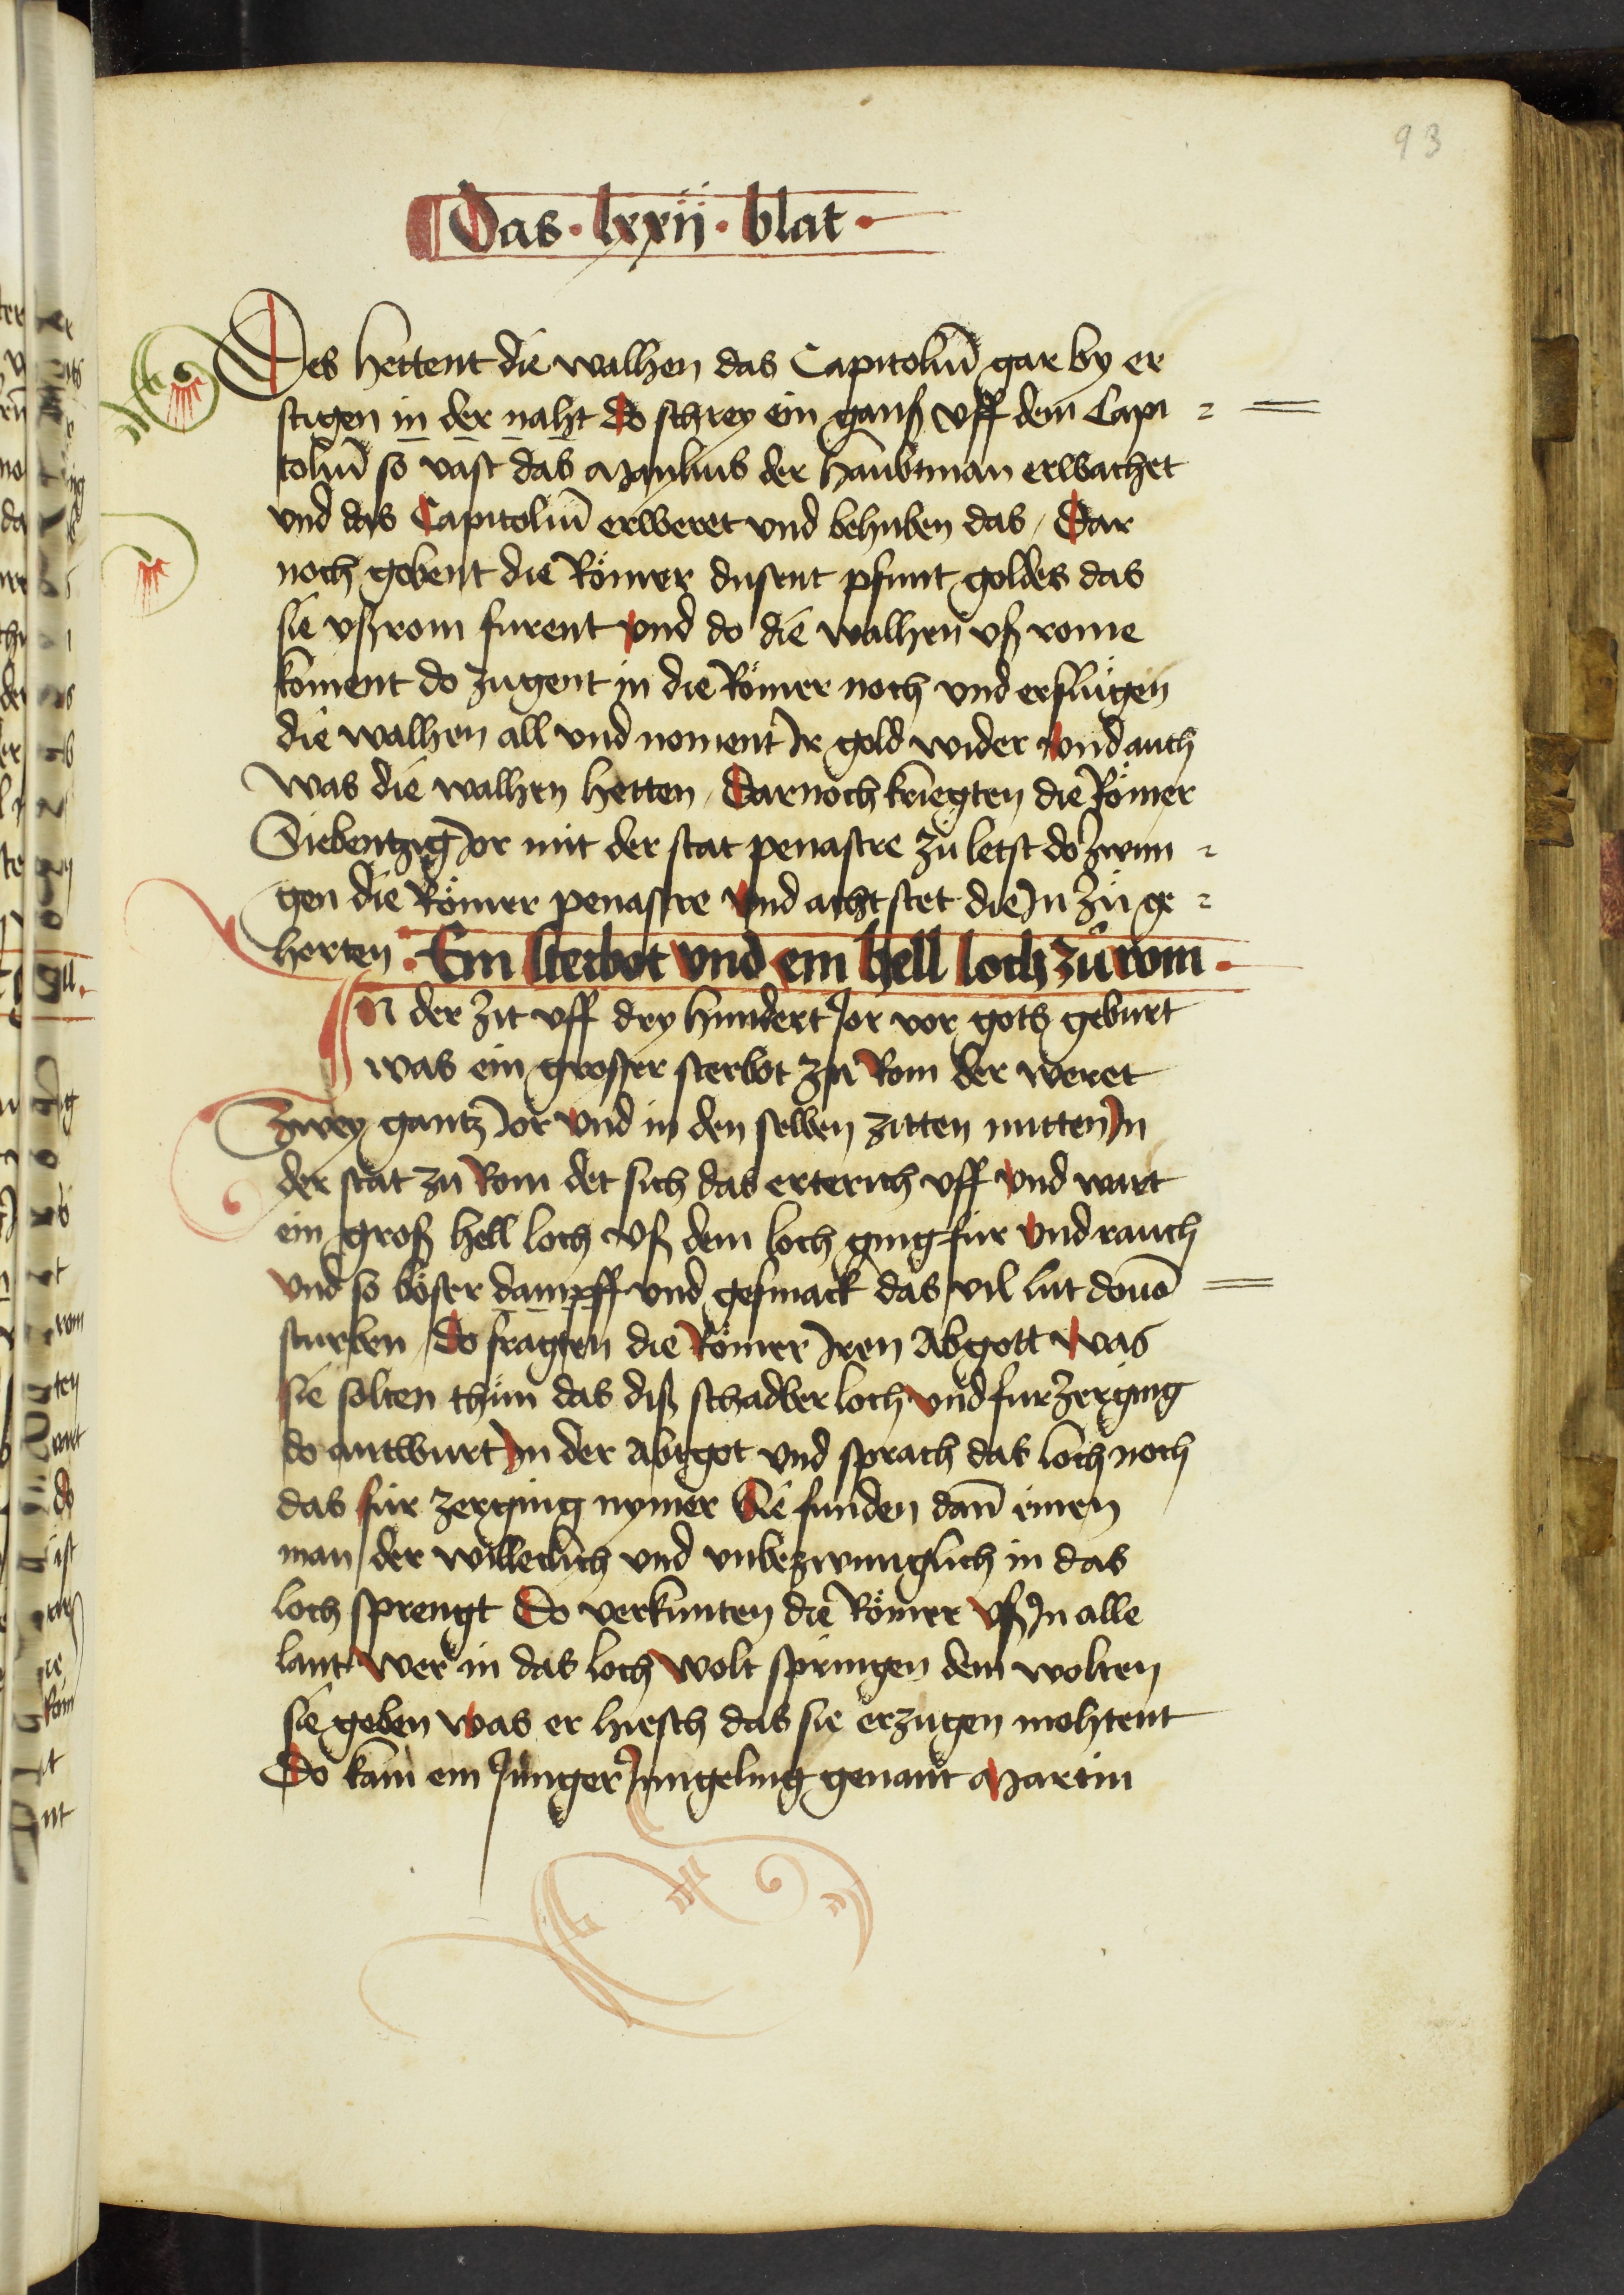 93
Das · lxxij · blat ·
Des hettent die walhen das Capitoliū gar by er
stigen in der naht do schrey ein ganß vff dem Capi =
toliū so vast das Manlius der haubtman erwachet
vnd das Capitoliū erweret vnd behuben das / Dar
noch gobent die Römer dusent pfunt goldes das
sie vß rom furent vnd do die walhen vß rome
koment do zugent in die Römer noch vnd erslůgen
die walhen all vnd noment Ir gold wider vnd auch
was die walhen hetten / Darnoch kriegten die Römer
Siebentzig Jor mit der stat penastre zů letst do zwun =
gen die Römer penastre vnd acht stet die In zů ge =
horten · Ein sterbot vnd ein hell loch zů rom ·
In der zit vff dry hundert Jor vor gots geburt
was ein grosser sterbot zů Rom der weret
Zwey gantz Jor vnd in den selben zitten mitten In
der stat zů Rom det sich das erterich vff vnd wart
ein groß hell loch vß dem loch ging für vnd rauch
vnd so böser dampff vnd gesmack das vil lut douō
sturben / Do fragten die Römer Iren Abgott was
sie solten thůn das diß schadber loch vnd fur zerging
do antwurt In der Abtgot vnd sprach das loch noch
das für zerging nymer Sie funden dañ einen
man der willeclich vnd vnbezwunglich in das
loch sprengt Do verkunten die Römer vß In alle
lant wer in das loch wolt springen dem wolten
sie geben was er hiesch das sie erzugen mohtent
Do kam ein Junger Jungeling genant Martin